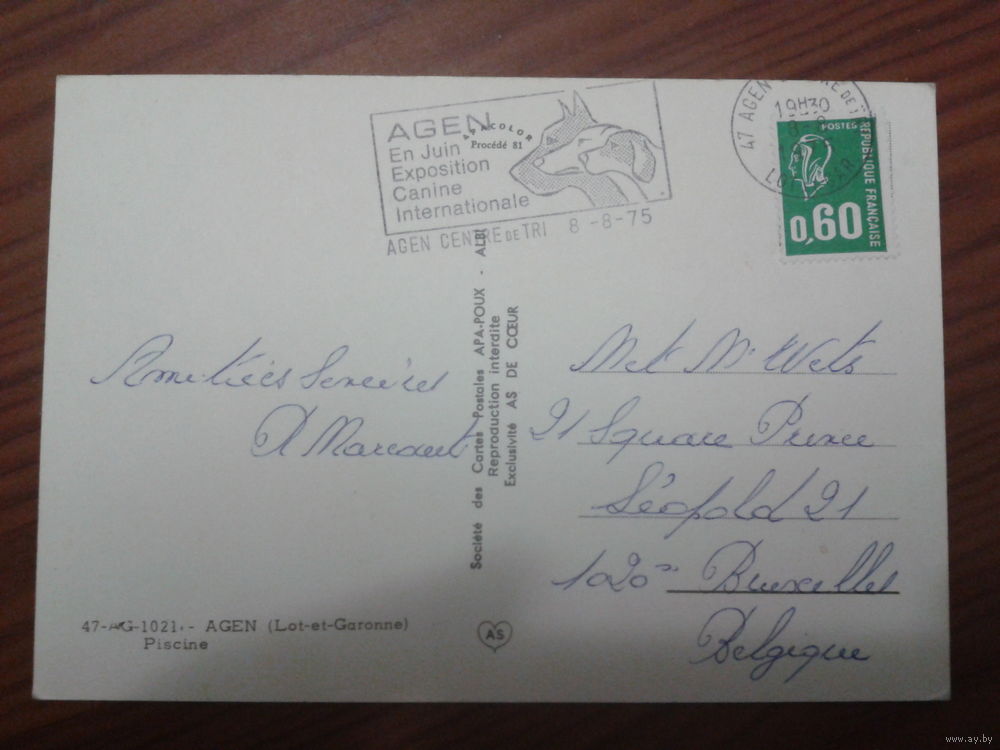 AGEN
En Juin
Exposition
Canine
Internationale
APACOLOR
Procédé 81
AGEN CENTRE DE TRI 8-8-75
47 AGEN CENTRE DE TRI
19H30
POSTES
REPUBLIQUE FRANÇAISE
0,60
Amitiés Sincères
Société des Cartes Postales APA-POUX - ALBI
Reproduction interdite
Exclusivité AS DE CŒUR
Met M. Wets
21 Square Prince
Léopold 21
1020 Bruxelles
Belgique
47-AG-1021. - AGEN (Lot-et-Garonne)
Piscine
AS
www.ay.by